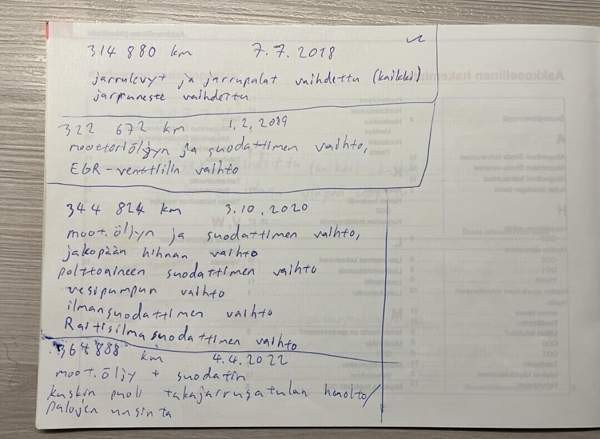 314 880 km 7.7.2018
jarrulevyt ja jarrupalat vaihdettu (kaikki)
jarruneste vaihdettu
322 672 km 1.2.2019
moottoriöljyn ja suodattimen vaihto,
EGR-venttiilin vaihto
344 824 km 3.10.2020
moot.öljyn ja suodattimen vaihto,
jakopään hihnan vaihto
polttoaineen suodattimen vaihto
vesipumpun vaihto
ilmansuodattimen vaihto
Raitisilmasuodattimen vaihto
364 888 km 4.4.2022
moot.öljy + suodatin
kuskin puoli takajarrusatulan huolto/
palojen uusinta